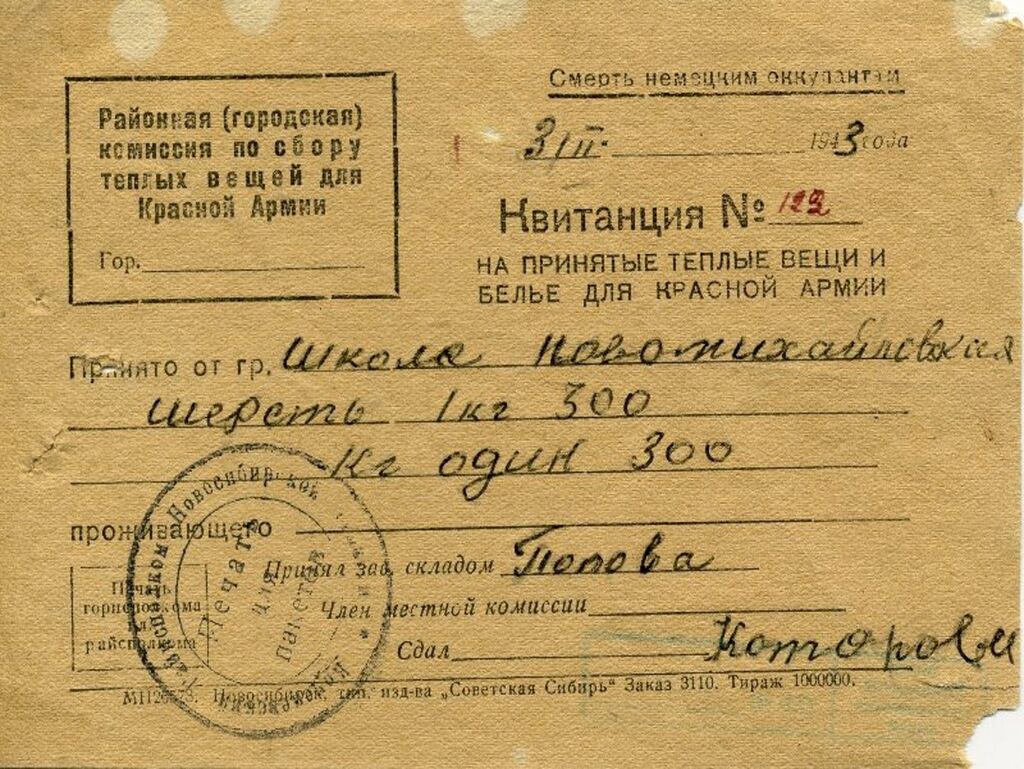 Смерть немецким оккупантам
Районная (городская)
комиссия по сбору
теплых вещей для
Красной Армии
Гор.
3/II. 1943 года
Квитанция № 122
НА ПРИНЯТЫЕ ТЕПЛЫЕ ВЕЩИ И
БЕЛЬЕ ДЛЯ КРАСНОЙ АРМИИ
Принято от гр. Школа Новомихайловская
шерсть 1 кг 300
Кг один 300
проживающего
Принял зав. складом Попова
Член местной комиссии
Сдал Которов
Печать
горисполкома
или
райсполкома
Новосибирской
Печать
для
пакетов
Новосибирск, тип. изд-ва „Советская Сибирь“ Заказ 3110. Тираж 1000000.